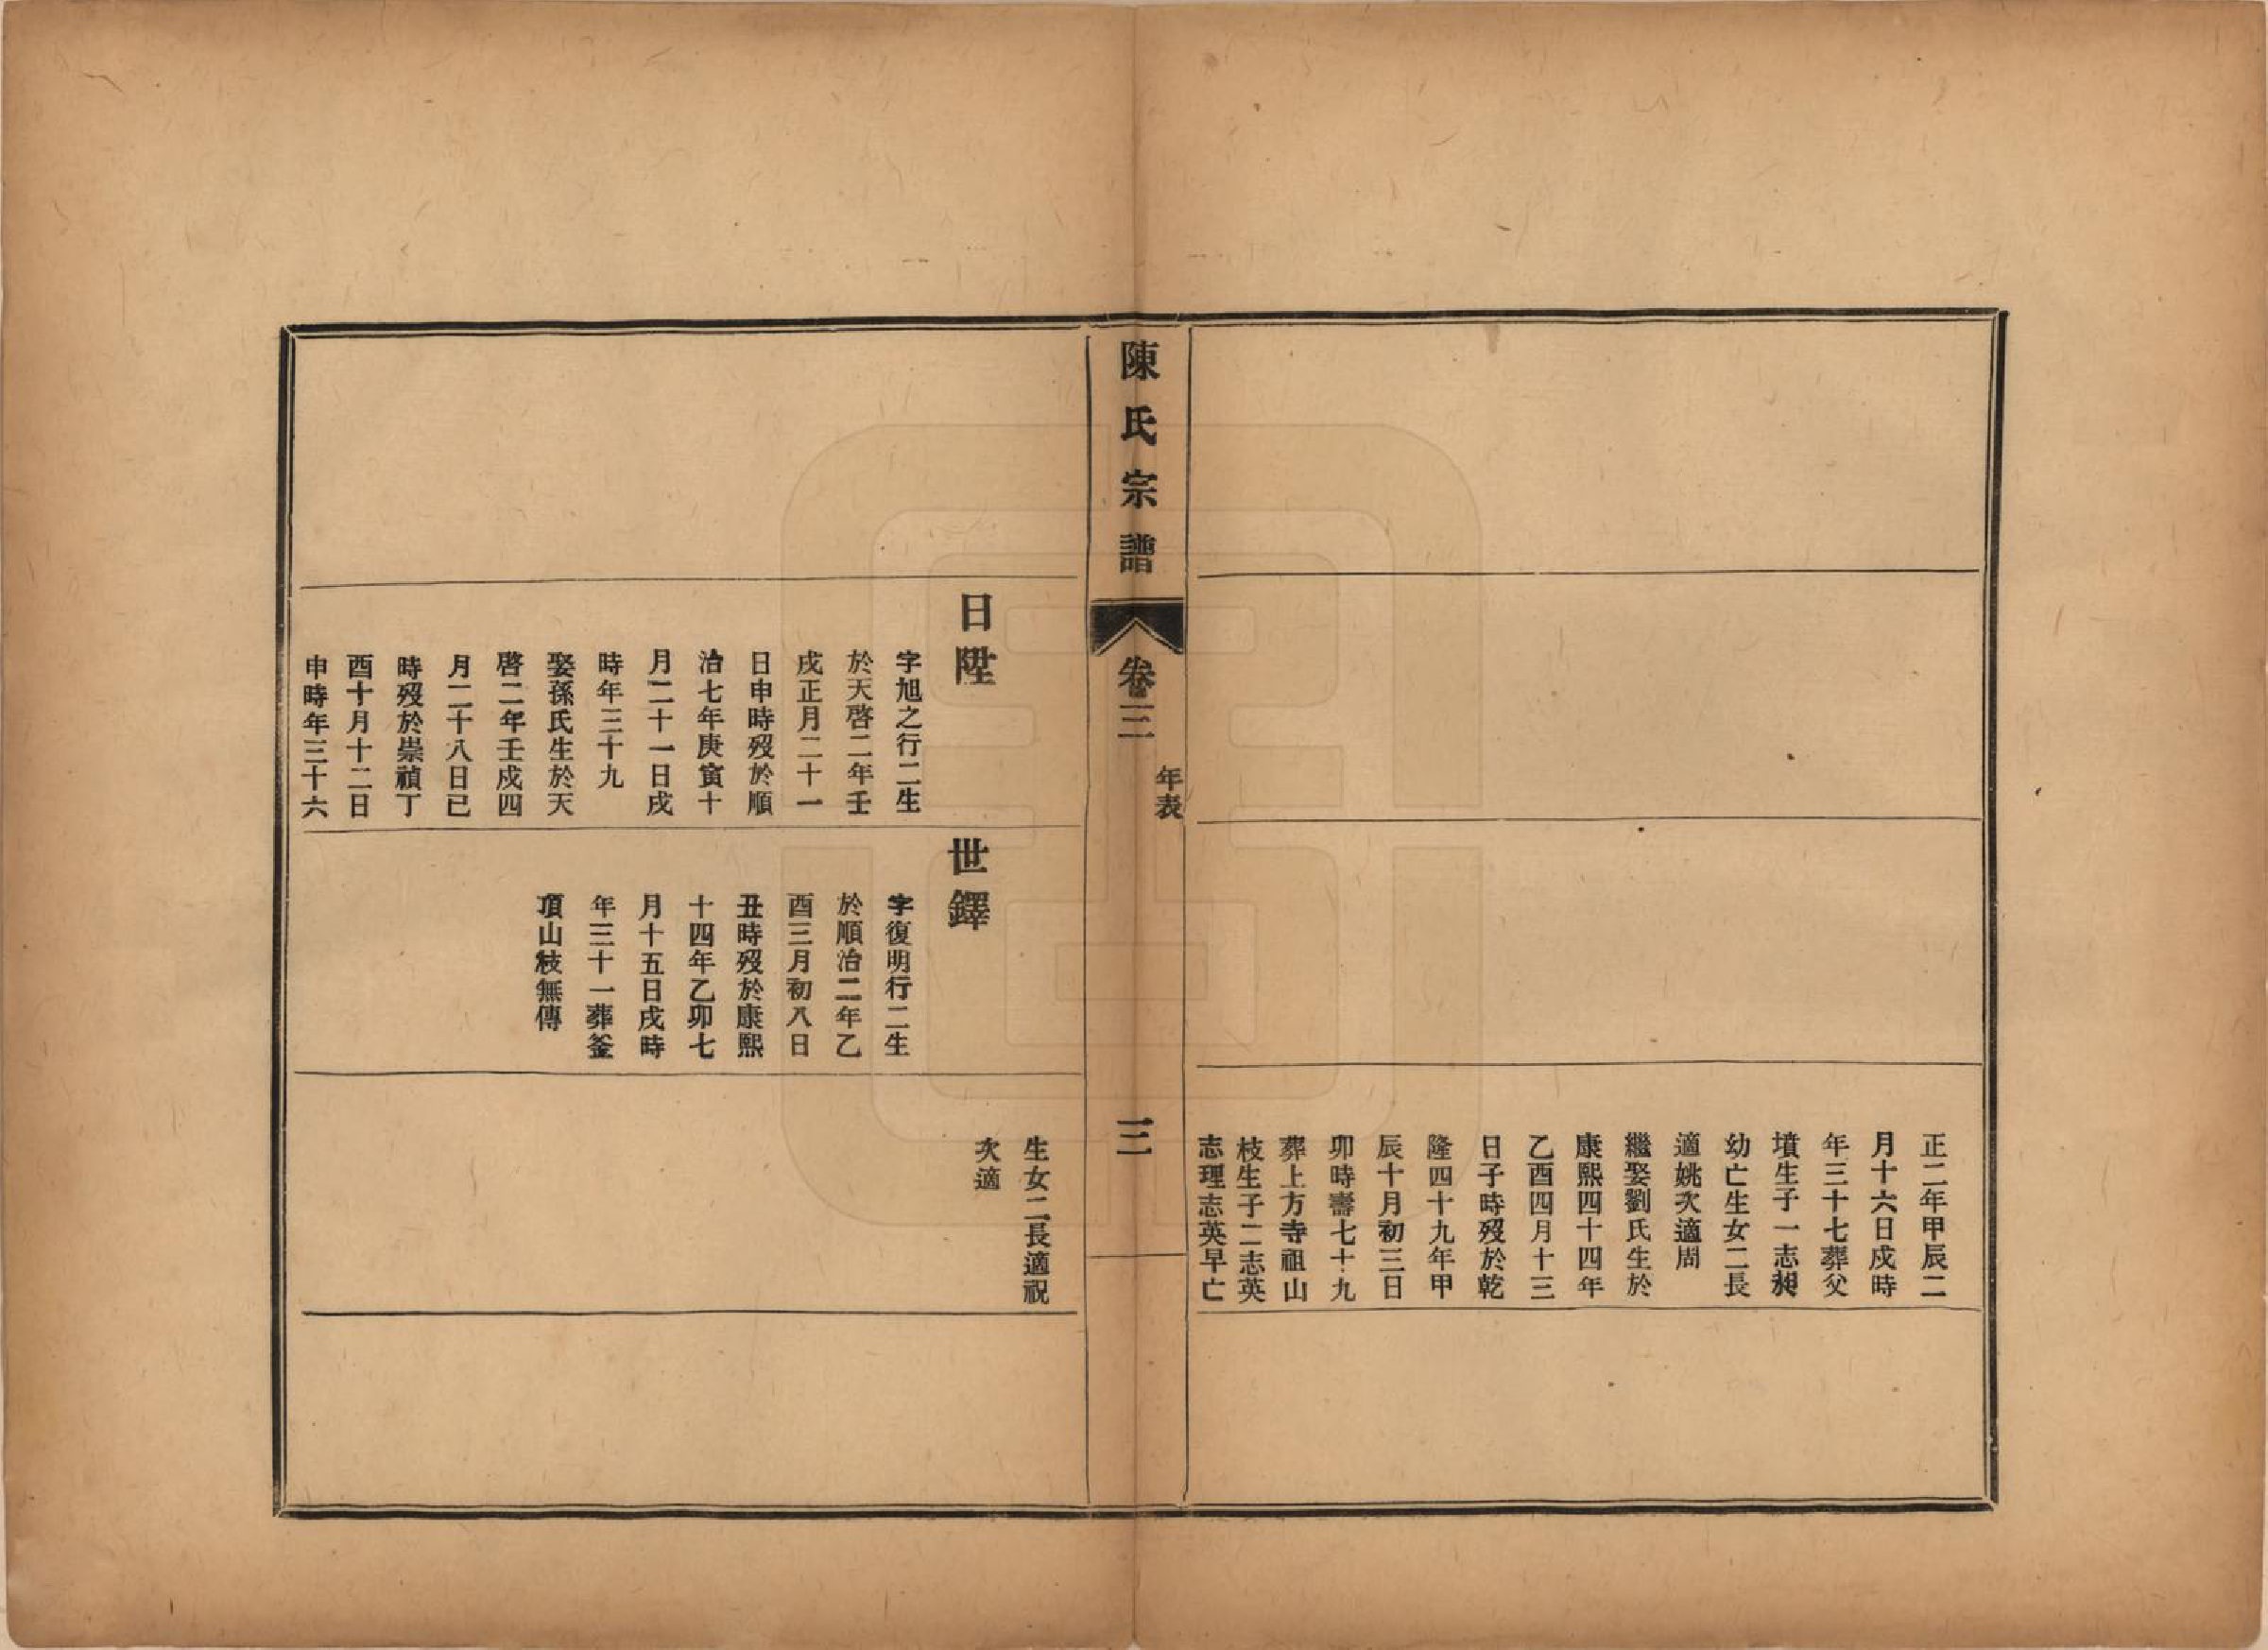 正二年甲辰二
月十六日戌時
年三十七葬父
墳生子一志
幼亡生女二長
適姚次適周
繼娶劉氏生於
康熙四十四年
乙酉四月十三
日子時歿於乾
隆四十九年甲
辰十月初三日
卯時壽七十九
葬上方寺祖山
枝生子二志英
志理志英早亡
陳氏宗譜
卷三
年表
三
生女二長適祝
次適
日陞
字旭之行二生
於天啓二年壬
戌正月二十一
日申時歿於順
治七年庚寅十
月二十一日戌
時年三十九
娶孫氏生於天
啓二年壬戌四
月二十八日巳
時歿於崇禎丁
酉十月十二日
申時年三十六
世鐸
字復明行二生
於順治二年乙
酉三月初八日
丑時歿於康熙
十四年乙卯七
月十五日戌時
年三十一葬釜
項山枝無傳